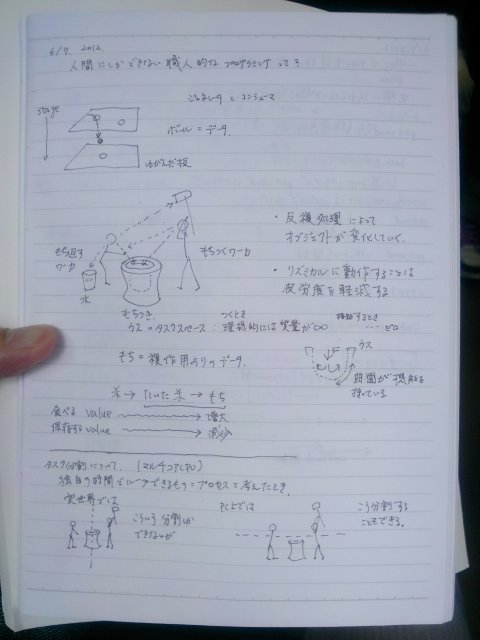 6/7. 2012
人間にしかできない職人的なプログラミングって?
ジェネレータとコンシューマ
stage
ボール = データ
ゆがんだ板
・反復処理によって
オブジェクトが変化していく.
もち返す
ワーカ
もちつくワーカ
・リズミカルに動作することは
疲労度を軽減する
水
もちつき.
つくとき
移動するとき
ウス = タスクスペース : 理想的には質量が∞ ... ゼロ
もち = 複作用ありのデータ.
ウス
曲面が機能を
担っている
米 → たいた米 → もち
食べる value → 増大
保存する value → 減少
タスク分割について. (マルチコアCPU)
独自の時間でループできるもの = プロセスと考えたとき.
実世界では
こういう分割しか
できないが
PC上では
こう分割する
こともできる.